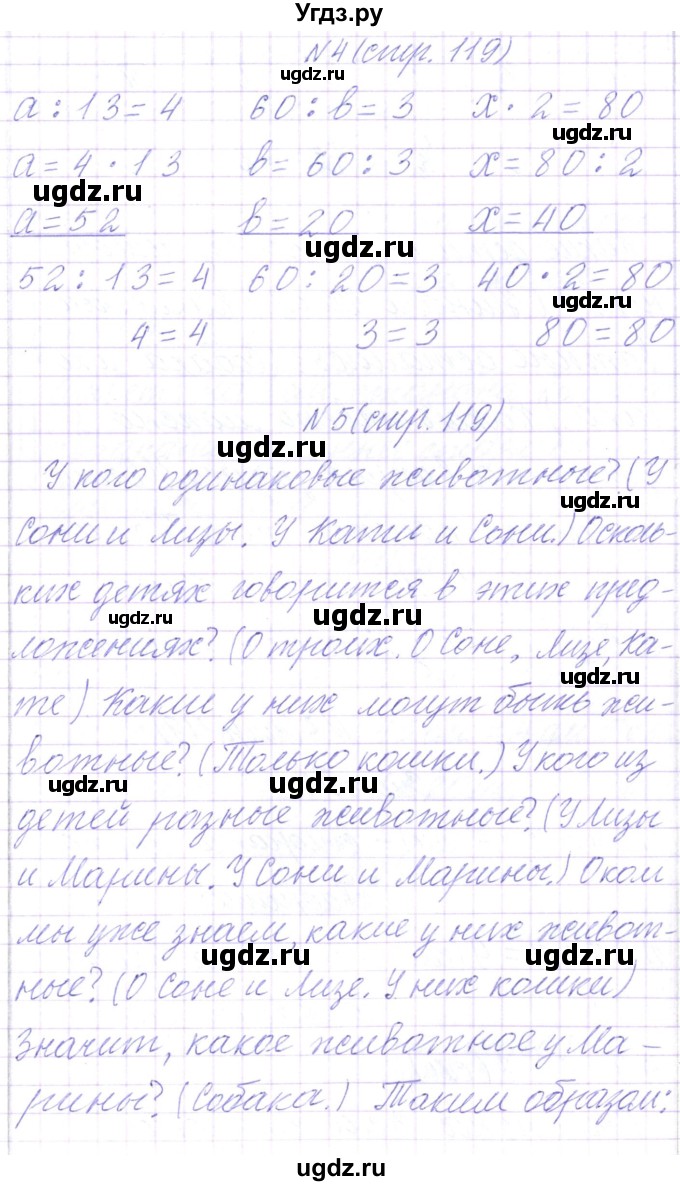 Угдз.ру
N4(стр. 119)
ugdz.ru
a : 13 = 4    60 : в = 3    x · 2 = 80
ugdz.ru
a = 4 · 13    в = 60 : 3    x = 80 : 2
ugdz.ru
a = 52    в = 20    x = 40
ugdz.ru
52 : 13 = 4    60 : 20 = 3    40 · 2 = 80
ugdz.ru
4 = 4    3 = 3    80 = 80
N5(стр. 119)
ugdz.ru
У кого одинаковые животные? (У
ugdz.ru
Сони и Лизы. У Кати и Сони.) О сколь-
ких детях говорится в этих пред-
ugdz.ru ugdz.ru
ложениях? (О троих. О Соне, Лизе, Ка-
ugdz.ru
те) Какие у них могут быть жи-
вотные? (Только кошки.) У кого из
ugdz.ru ugdz.ru
детей разные животные? (У Лизы
и Марины. У Сони и Марины.) О ком
мы уже знаем, какие у них живот-
ugdz.ru ugdz.ru
ные? (О Соне и Лизе. У них кошки)
Значит, какое животное у Ма-
рины? (Собака.) Таким образом:
ugdz.ru